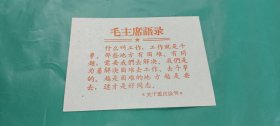 毛主席语录
什么叫工作,工作就是斗
争。那些地方有困难、有问
题,需要我们去解决。我们是
为着解决困难去工作、去斗争
的。越是困难的地方越是要
去,这才是好同志。
《关于重庆谈判》